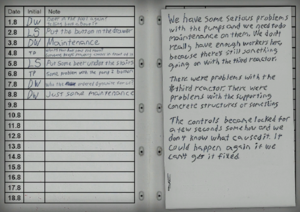 Date Initial Note
1.8 DW
2.8 LS Put the button in the drawer
3.8 DW Maintenance
4.8 TP
5.8 LS Put some beer under the stairs
6.8 TP Same problem with the pump 2
7.8 DW
8.8 DW Just some maintenance
9.8
10.8
11.8
12.8
13.8
14.8
15.8
16.8
17.8
18.8
We have some serious problems
with the pumps and we need to do
maintenance on them. We dont
really have enough workers here
because theres still something
going on with the third reactor.
There were problems with the
third reactor. There were
problems with the supporting
concrete structures or something
The controls became locked for
a few seconds somehow and we
don't know what caused it. It
could happen again if we
can't get it fixed